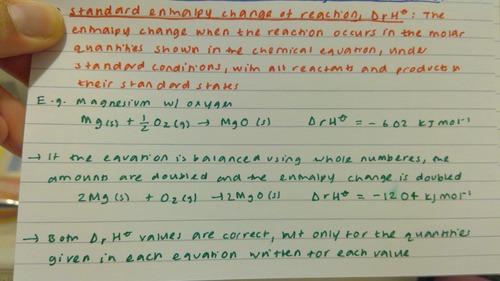 standard enthalpy change of reaction, ΔrH⦵: The
enthalpy change when the reaction occurs in the molar
quantities shown in the chemical equation, under
standard conditions, with all reactants and products in
their standard states
E.g. magnesium w/ oxygen
Mg(s) + ½O₂(g) → MgO(s) ΔrH⦵ = -602 kJmol⁻¹
→ If the equation is balanced using whole numberes, the
amounts are doubled and the enthalpy change is doubled
2Mg(s) + O₂(g) → 2MgO(s) ΔrH⦵ = -1204 kJmol⁻¹
→ Both ΔrH⦵ values are correct, but only for the quantities
given in each equation written for each value